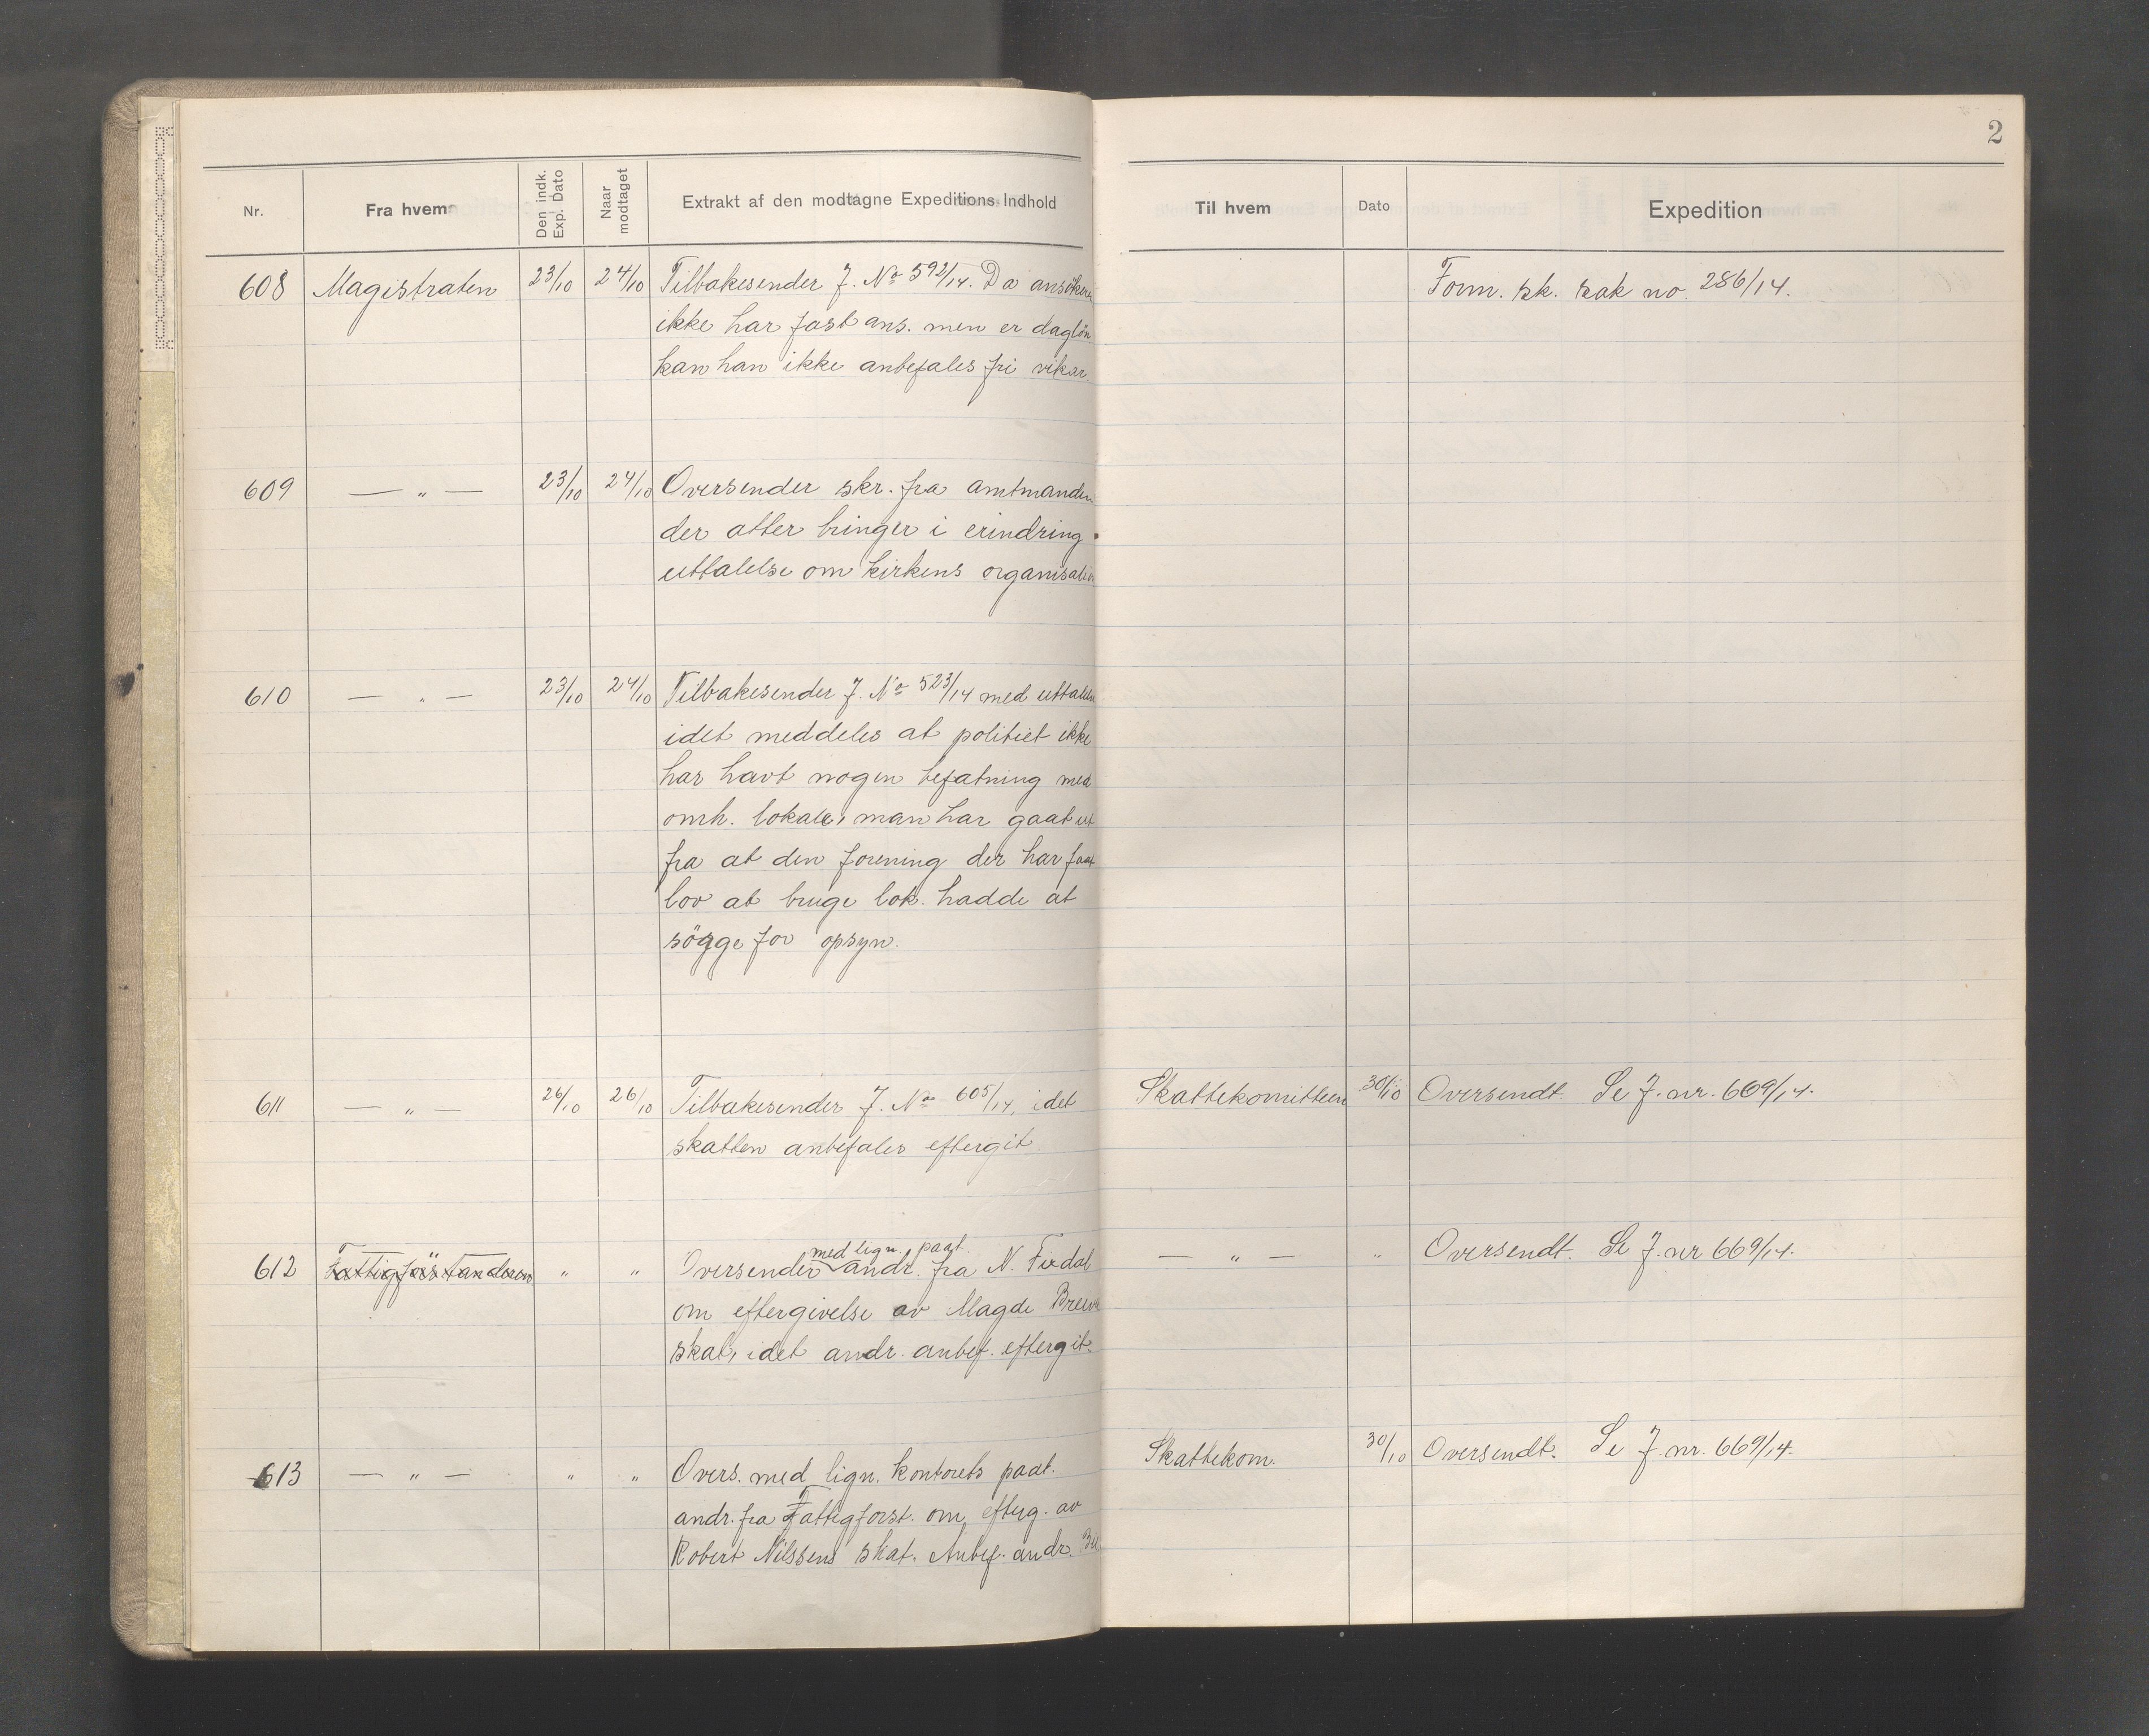 2
Nr.
Fra hvem
Den indk. Exp. Dato
Naar modtaget
Extrakt af den modtagne Expeditions Indhold
Til hvem
Dato
Expedition
608 Magistraten 23/10 24/10 Tilbakesender J. No 592/14. Da ansökeren Form. sk. sak no. 286/14.
ikke har fast ans. men er daglön
kan han ikke anbefales fri vikar.
609 — „ — 23/10 24/10 Oversender skr. fra amtmanden
der atter bringer i erindring
uttalelse om kirkens organisation
610 — „ — 23/10 24/10 Tilbakesender J. No 523/14 med uttalelse
idet meddeles at politiet ikke
har havt nogen befatning med
omh. lokale, man har gaat ut
fra at den forening der har faat
lov at bruge lok. hadde at
sögge for opsyn.
611 — „ — 26/10 26/10 Tilbakesender J. No 605/14, idet Skattekomiteen 30/10 Oversendt. Se J. nr. 609/14.
skatten anbefales eftergit
med lign. paat.
612 Fattigforstanderen „ „ Oversender andr. fra N. Fixdal — „ — „ Oversendt. Se J. nr 669/14.
om eftergivelse av Magde
skat, idet andr. anbef. eftergit.
613 — „ — „ „ Overs. med lign. kontorets paat. Skattekom. 30/10 Oversendt. Se J. nr. 669/14.
andr. fra Fattigforst. om efterg. av
Robert Nilssens skat. Anbef. andr.